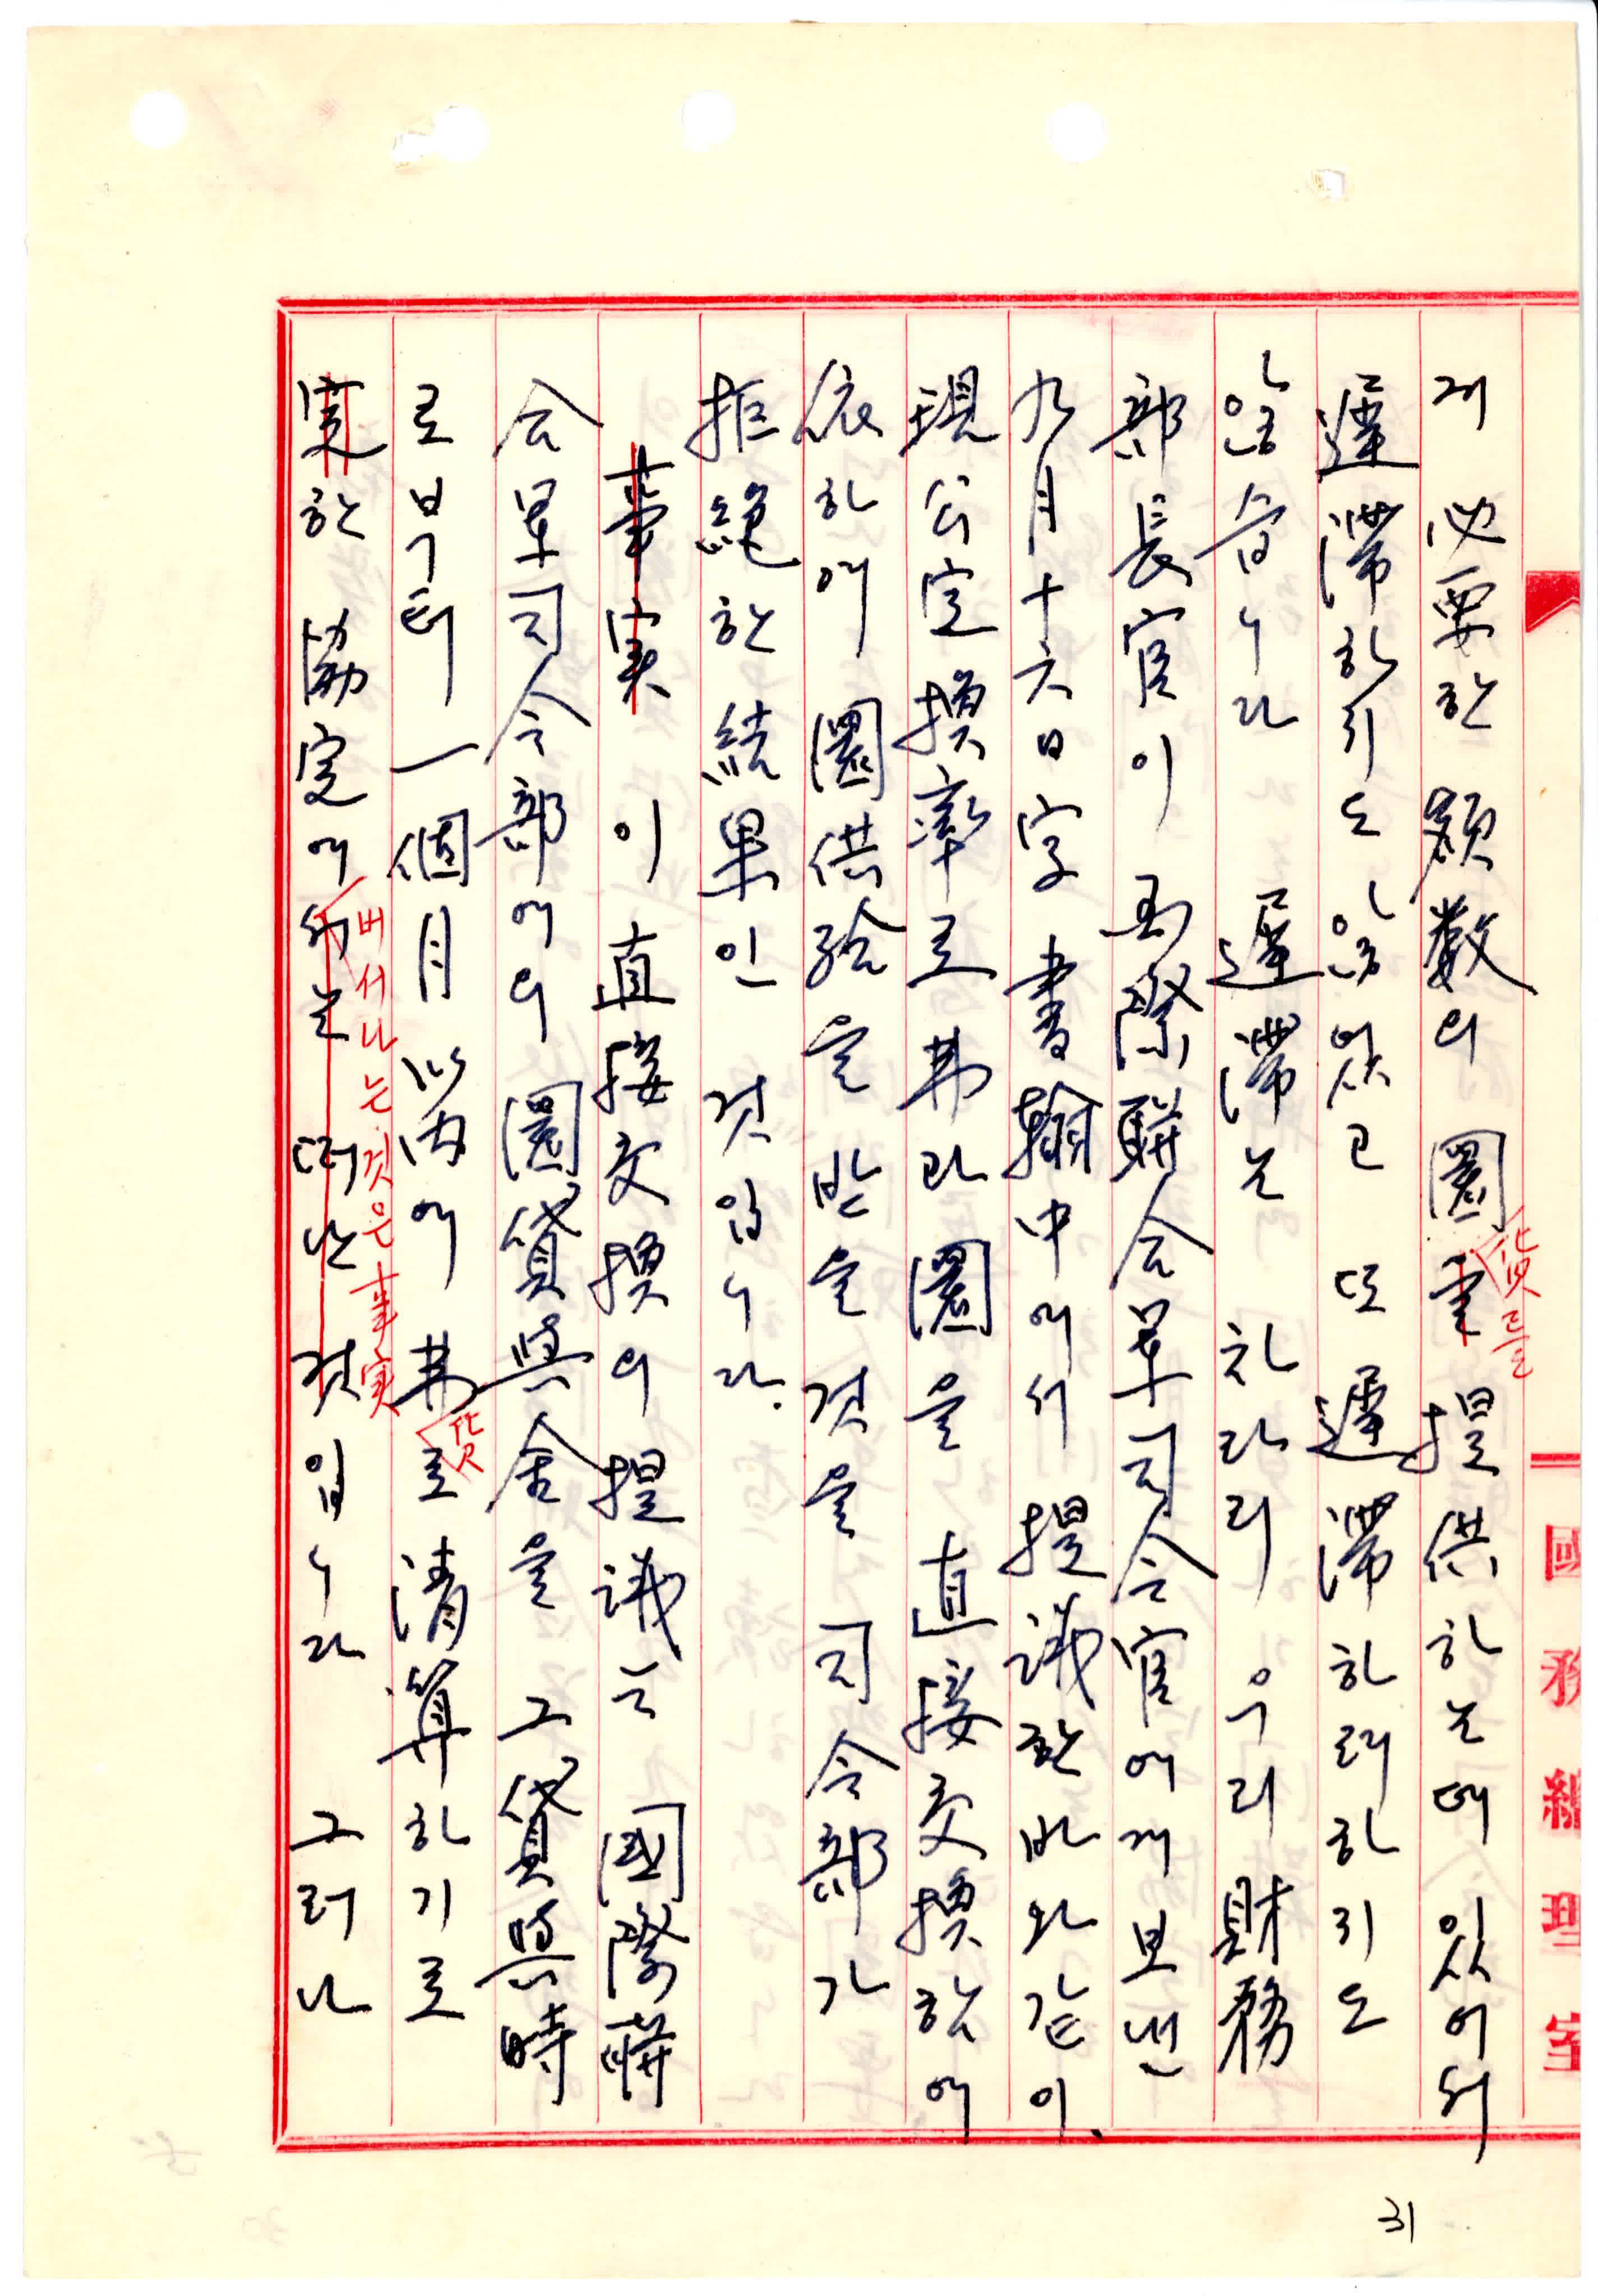 게 必要한 額数의 圜畫 提供하는데 있어서
貨를
遲滯하지도 않았고 또 遲滯하려하지도
않습니다 遲滯는 차라리 우리 財務
部長官이 国際聯合軍司令官에게 보낸
九月十六日字 書翰中에서 提議한바와같이
現公定換率로 弗과 圜을 直接交換함에
依하여 圜供給을 받을것을 司令部가
拒絶한 結果인 것입니다.
事実 이 直接交換의 提議는 國際聯
合軍司令部에의 圜貸與金을 그 貸與時
로부터 一個月以內에 弗로 清算하기로
貨
定한 協定에서는 떠난 것입니다 그러나
버서나는것은 事実
國務總理室
31